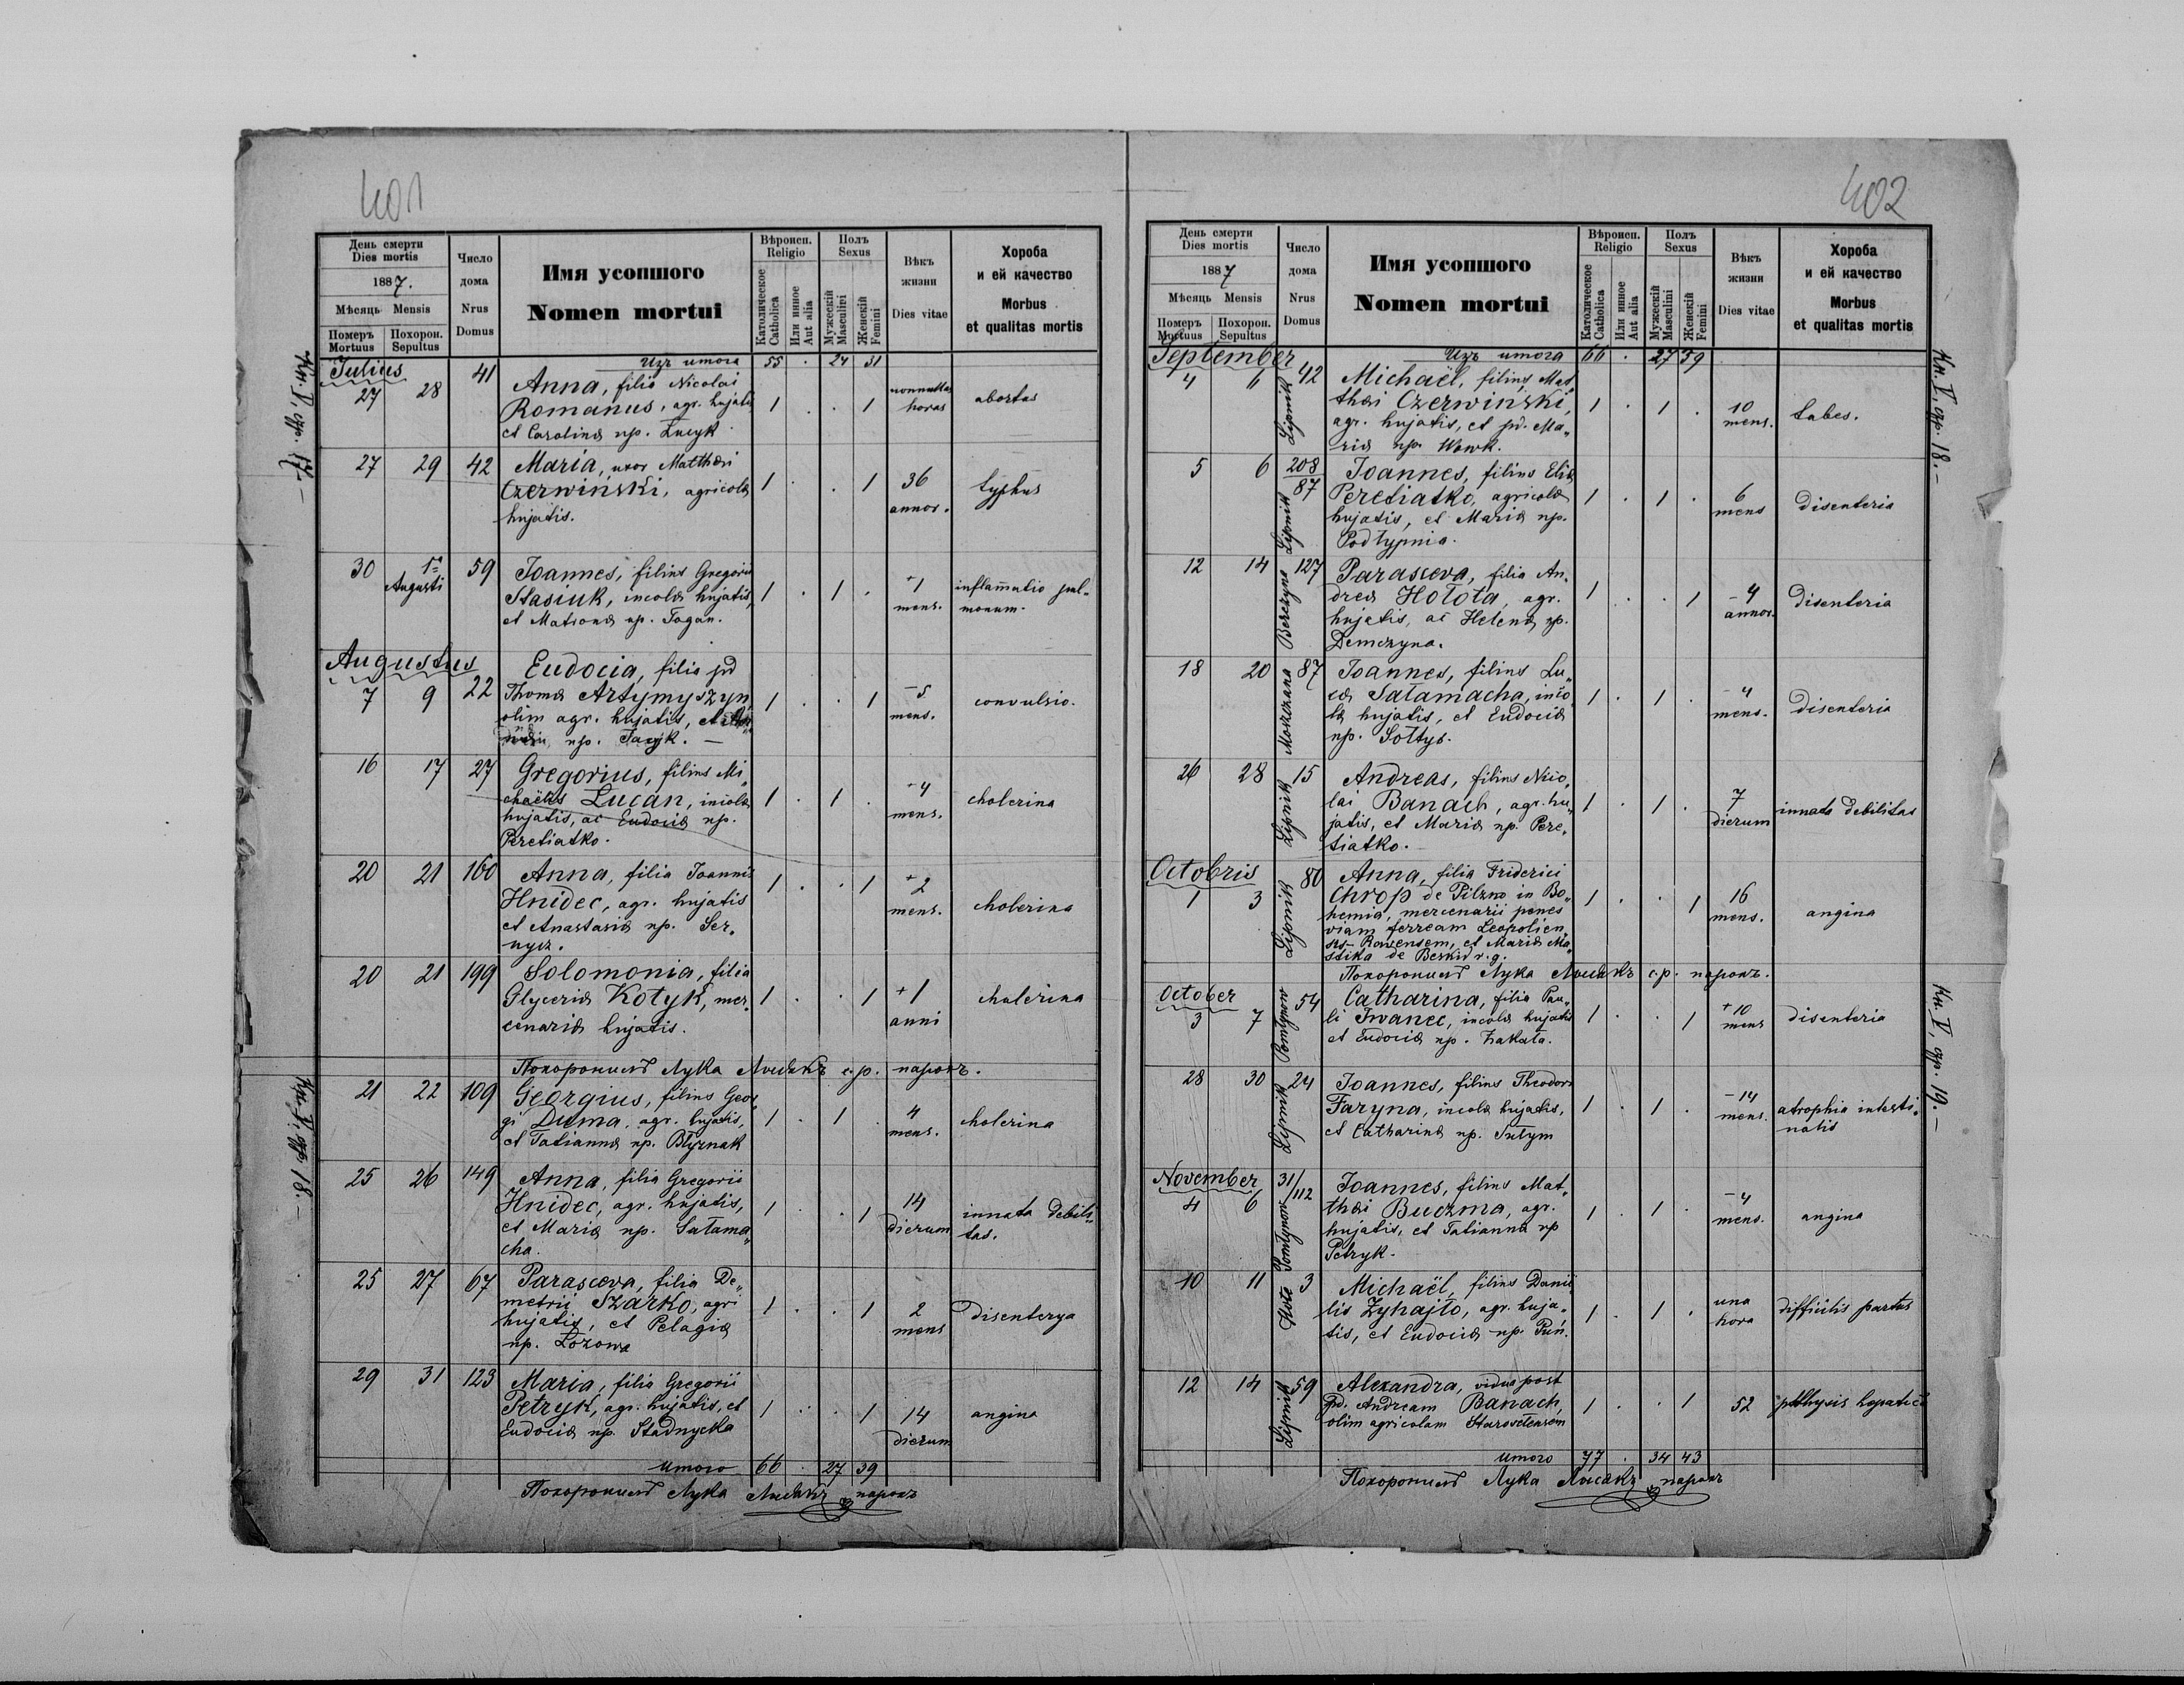 401
День смерти
Dies mortis
1887.
Мѣсяць Mensis
Померъ Похорон.
Mortuus Sepultus
Число
дома
Nrus
Domus
Имя усопшого
Nomen mortui
Вѣроисп.
Religio
Католическое
Catholica
Или инное
Aut alia
Полъ
Sexus
Мужескій
Masculiei
Женскій
Femini
Вѣкъ
жизни
Dies vitae
Хороба
и ей качество
Morbus
et qualitas mortis
Изъ итога 55 . 24 31
Julius
27 28 41 Anna, filia Nicolai 1 . . 1 nonnullas horas abortus
Romanus, agr. hujatis
et Carolina np. Lucyk
27 29 42 Maria, uxor Matthæi 1 . . 1 36 annor. typhus
Czerwiński, agricolæ
hujatis.
30 1ᵃ Augusti 59 Joannes, filius Gregorii 1 . 1 . +1 mens. inflam̄atio pul-
Stasiuk, incolæ hujatis, monum.
et Matronæ np. Fagan.
Augustus
7 9 22 Eudocia, filia pd 1 . . 1 –5 mens. convulsio.
Thomæ Artymyszyn,
olim agr. hujatis, et
np. Jacyk. —
16 17 27 Gregorius, filius Mi„ 1 . 1 . –4 mens. cholerina
chaëlis Lucan, incolæ
hujatis, ac Eudociæ np.
Peretiatko.
20 21 160 Anna, filia Joannis 1 . . 1 +2 mens. cholerina
Hnidec, agr. hujatis
et Anastasiæ np. Ser„
nycz.
20 21 199 Solomonia, filia 1 . . 1 +1 anni cholerina
Glyceriæ Kotyk, mer„
cenariæ hujatis.
Похоронилъ Лука Лисакъ с.р. парохъ.
21 22 109 Georgius, filius Geor„ 1 . 1 . 4 mens. cholerina
gi Duma, agr. hujatis,
et Tatianna np. Błyznak
25 26 149 Anna, filia Gregorii 1 . . 1 14 dierum innata debili„
Hnidec, agr. hujatis, tas.
et Maria np. Sałama„
cha.
25 27 67 Parasceva, filia De„ 1 . . 1 2 mens Disenterya
metrii Szarko, agri
hujatis, et Pelagiæ
np. Łozowa
29 31 123 Maria, filia Gregorii 1 . . 1 14 dierum angina
Petryk, agr. hujatis, et
Eudociæ np. Stadnycka
Итого 66 . 27 39
Похоронилъ Лука Лисакъ парохъ
Кн. V, стр. 17.–
Кн. V, стр. 18.–
402
День смерти
Dies mortis
1887
Мѣсяць Mensis
Померъ Похорон.
Mortuus Sepultus
Число
дома
Nrus
Domus
Имя усопшого
Nomen mortui
Вѣроисп.
Religio
Католическое
Catholica
Или инное
Aut alia
Полъ
Sexus
Мужескій
Masculini
Женскій
Femini
Вѣкъ
жизни
Dies vitae
Хороба
и ей качество
Morbus
et qualitas mortis
Изъ итога 66 . 27 39
September
4 6 Lipnik 42 Michaël, filius Mat„ 1 . 1 . 10 mens. tabes.
thæi Czerwiński,
agr. hujatis, et pd. Ma„
ria np. Wowk.
5 6 Lipnik 208/87 Joannes, filius Eliæ 1 . 1 . 6 mens Disenteria
Peretiatko, agricolæ
hujatis, et Mariæ np.
Podłypnia.
12 14 Berezyna 127 Parasceva, filia An„ 1 . . 1 –4 annor. Disenteria
dreæ Hołota, agr.
hujatis, ac Helenæ np.
Demczyna.
18 20 Moszczana 87 Joannes, filius Lu„ 1 . 1 . –4 mens. Disenteria
cæ Sałamacha, inco„
læ hujatis, et Eudociæ
np. Sołtys.
26 28 Lipnik 15 Andreas, filius Nico„ 1 . 1 . 7 dierum innata debilitas
lai Banach, agr. hu„
jatis, et Mariæ np. Pere„
tiatko.
Octobris
1 3 Lipnik 80 Anna, filia Friderici 1 . . 1 16 mens. angina
Chrop de Pilzno in Bo„
hemia, mercenarii penes
viam ferream Leopolien„
sis-Rawensem, et Mariæ Ma„
stika de Beskid r. g.
Похоронилъ Лука Лисакъ с.р. парохъ.
October
3 7 54 Catharina, filia Pau„ 1 . . 1 +10 mens disenteria
li Iwanec, incolæ hujatis
et Eudociæ np. Zakala.
28 30 Lipnik 24 Joannes, filius Theodori 1 . 1 . –14 mens. atrophia intesti„
Faryna, incolæ hujatis, nalis
et Catharinæ np. Sułym
November
4 6 31/112 Joannes, filius Mat„ 1 . 1 . –4 mens. angina
thæi Buczma, agr.
hujatis, et Tatianna np
Petryk.
10 11 3 Michaël, filius Danii„ 1 . 1 . una hora difficilis partus
lis Zyhajło, agr. huja„
tis, et Eudociæ np. Puń.
12 14 Lipnik 59 Alexandra, vidua post 1 . . 1 52 phthysis hepatica
pd. Andream Banach,
olim agricolam Staroselensem
Итого 77 . 34 43
Похоронилъ Лука Лисакъ парохъ
Кн. V, стр. 18.–
Кн. V, стр. 19.–